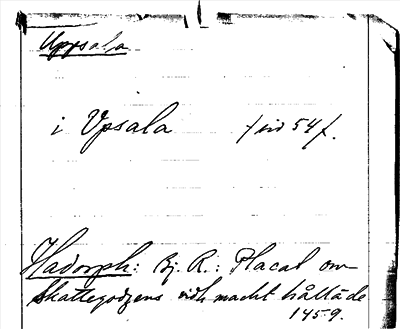 Uppsala
i Vpsala / sid 54 f.
Hadorph: Bj. R.: Placat om
Skattegodzens widh macht hållade
1459.